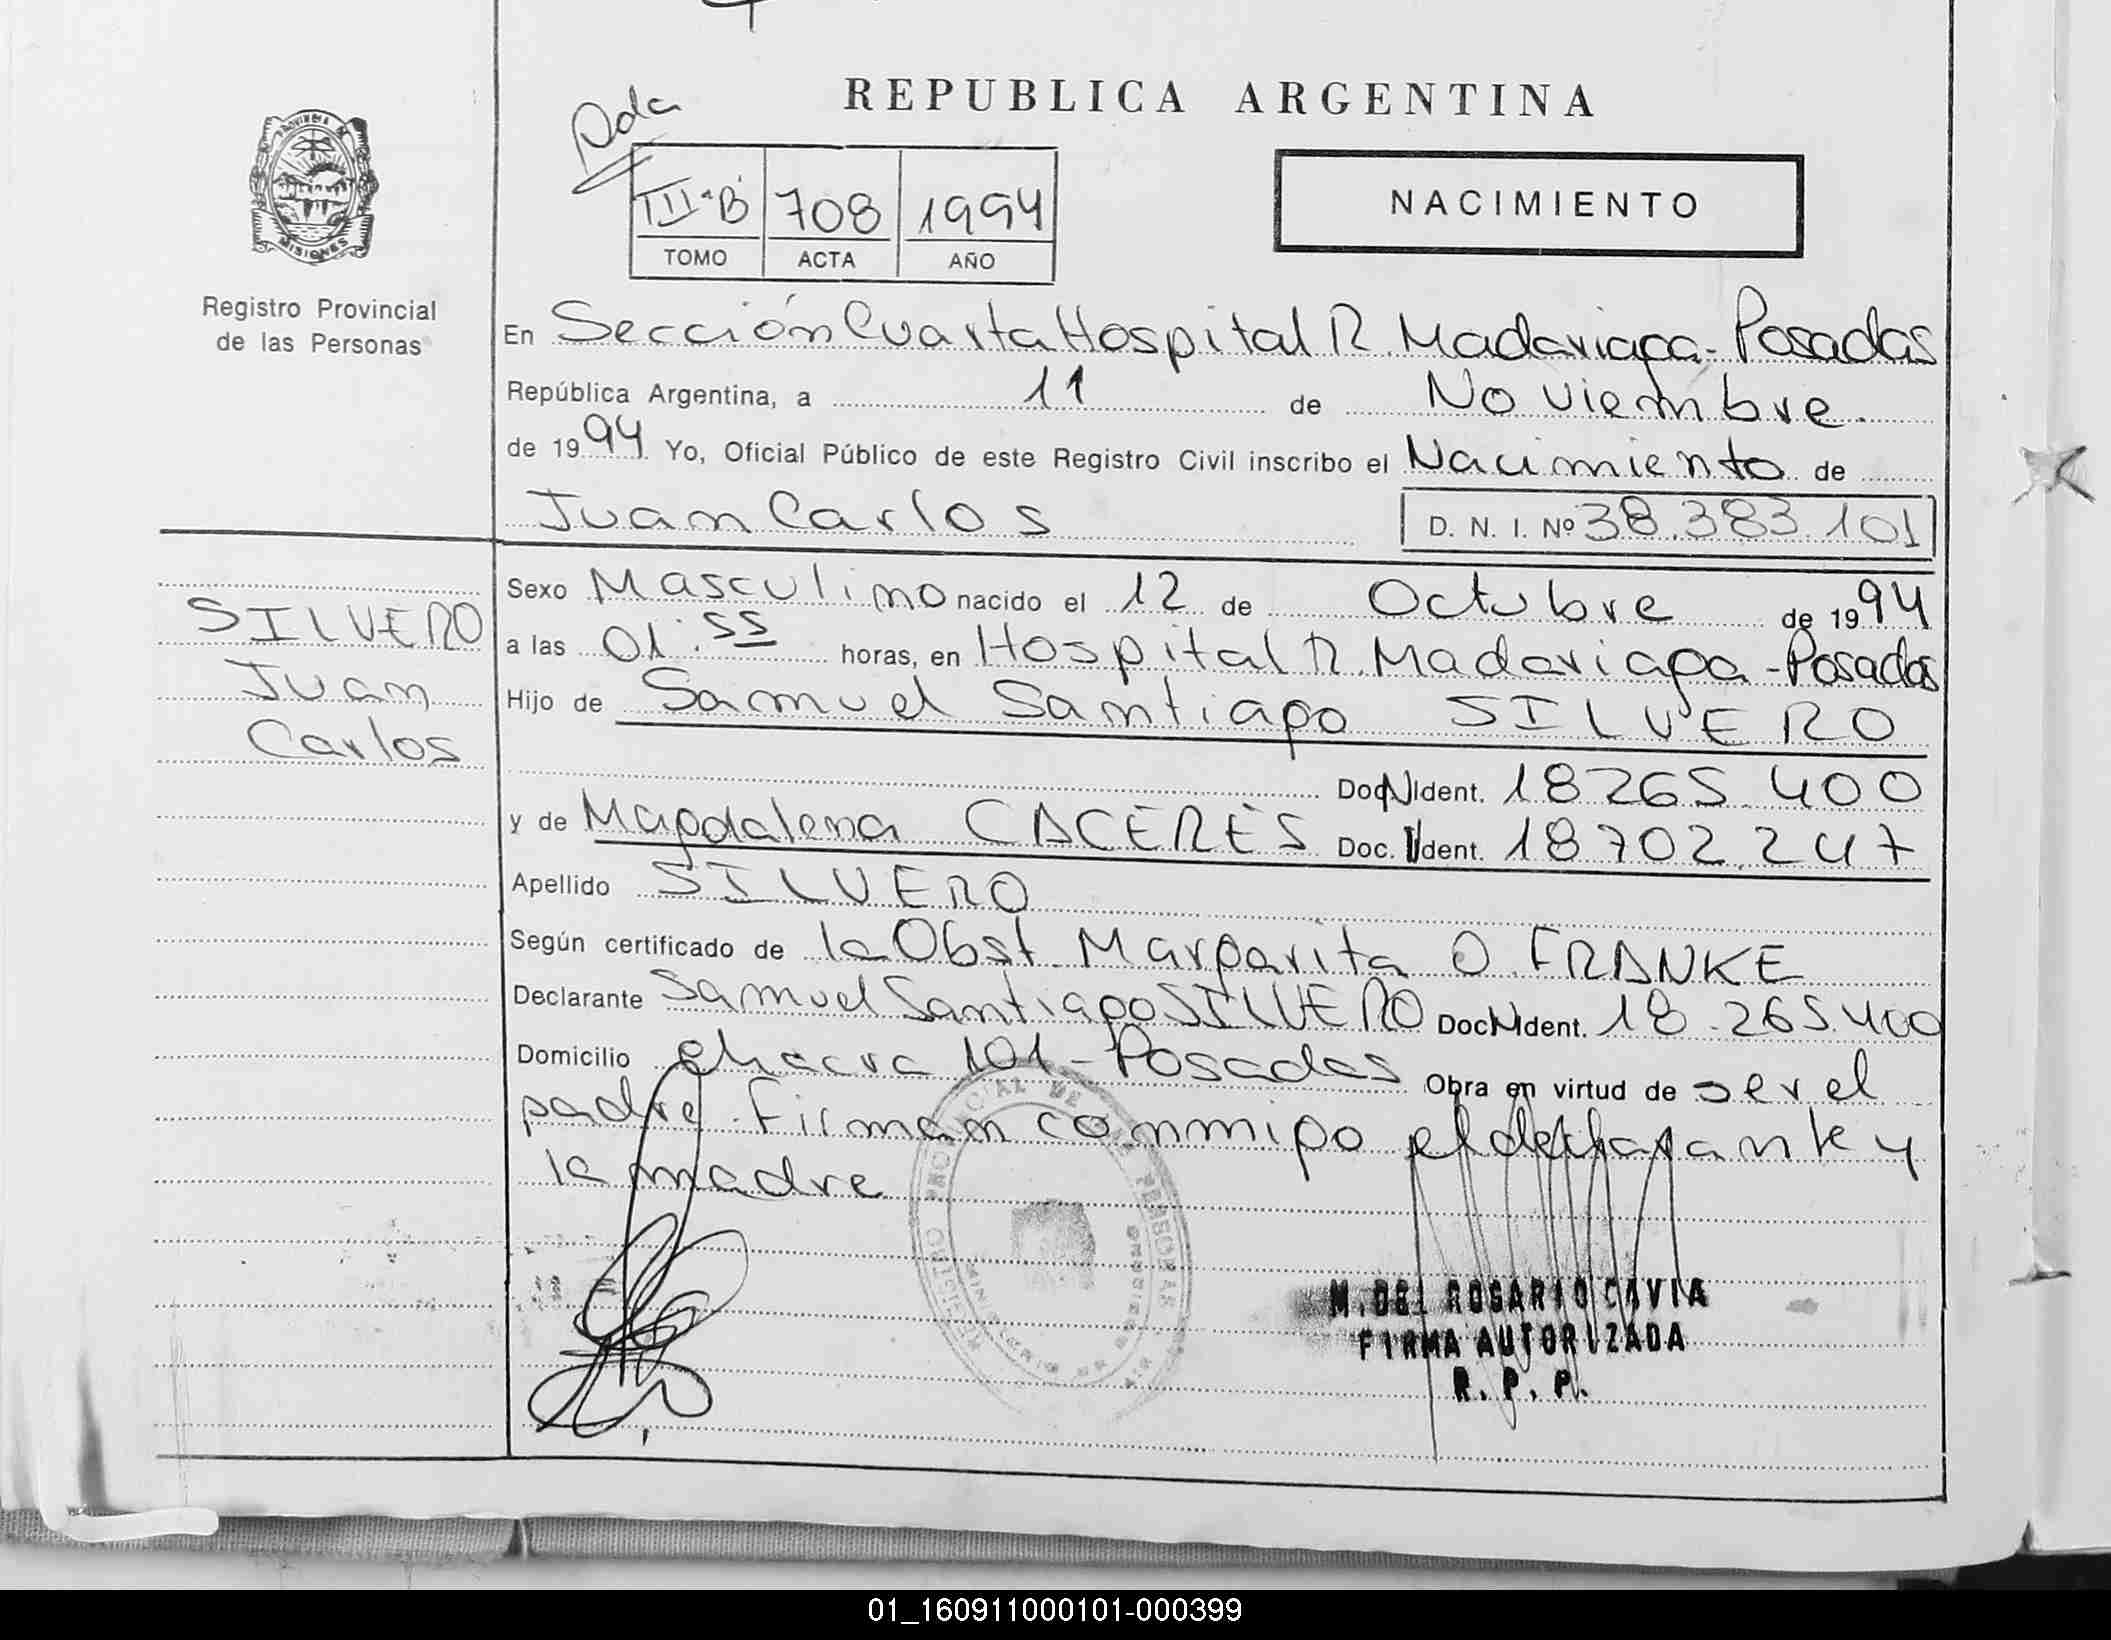 REPUBLICA ARGENTINA
PROVINCIA DE
MISIONES
Registro Provincial
de las Personas
III-B 708 1994
TOMO ACTA AÑO
NACIMIENTO
En Sección Cuarta Hospital R. Madariaga - Posadas
República Argentina, a 11 de Noviembre.
de 1994 Yo, Oficial Público de este Registro Civil inscribo el Nacimiento de
Juan Carlos D. N. I. Nº 38.383.101
SILVERO
Juan
Carlos
Sexo Masculino nacido el 12 de Octubre de 1994
a las 01:55 horas, en Hospital R. Madariaga - Posadas
Hijo de Samuel Santiago SILVERO
Doc N Ident. 18265.400
y de Magdalena CACERES Doc. Ident. 18702.247
Apellido SILVERO
Según certificado de la Obst. Margarita O. FRANKE
Declarante Samuel Santiago SILVERO Doc N Ident. 18.265.400
Domicilio chacra 101 - Posadas Obra en virtud de ser el
padre. Firman conmigo el declarante y
la madre
REGISTRO PROVINCIAL DE LAS PERSONAS
M. DEL ROSARIO CAVIA
FIRMA AUTORIZADA
R. P. P.
01_160911000101-000399